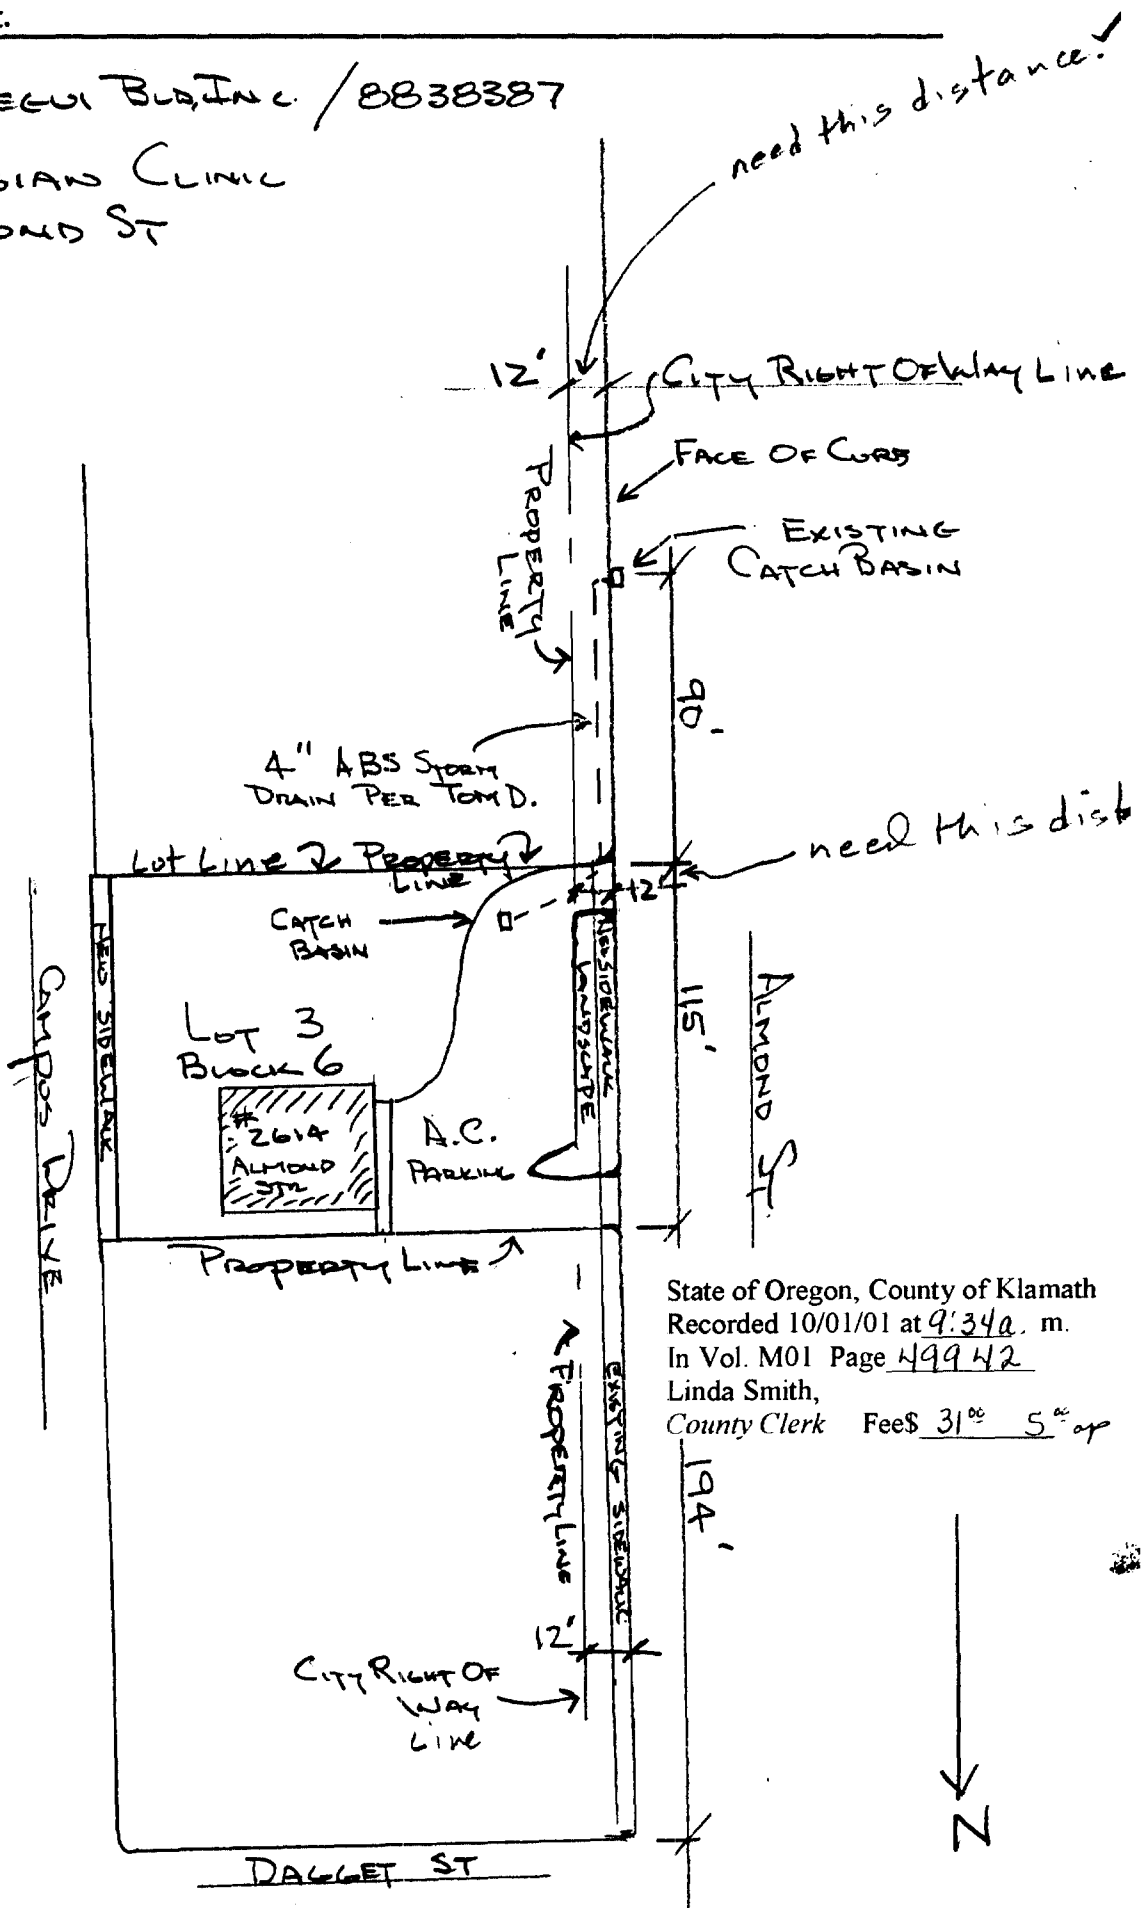 BLD, INC. / 8838387
CLINIC
ST
need this distance!
12'
CITY RIGHT OF WAY LINE
FACE OF CURB
PROPERTY
LINE
EXISTING
CATCH BASIN
90'
4" ABS STORM
DRAIN PER TOM D.
need this dist
LOT LINE PROPERTY
LINE
12'
CATCH
BASIN
NEW SIDEWALK
NEW SIDEWALK
LANDSCAPE
CAMPOS DRIVE
LOT 3
BLOCK 6
115'
ALMOND ST.
#2614
ALMOND
STR
A.C.
PARKING
PROPERTY LINE
State of Oregon, County of Klamath
Recorded 10/01/01 at 9:34a. m.
In Vol. M01 Page 49942
Linda Smith,
County Clerk Fee$ 31⁰⁰ 5⁰⁰ op
PROPERTY LINE
EXISTING SIDEWALK
194'
12'
CITY RIGHT OF
WAY
LINE
N
DAGGET ST